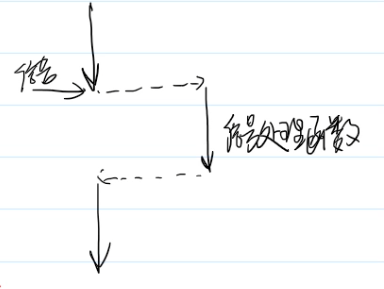 信号
信号处理函数